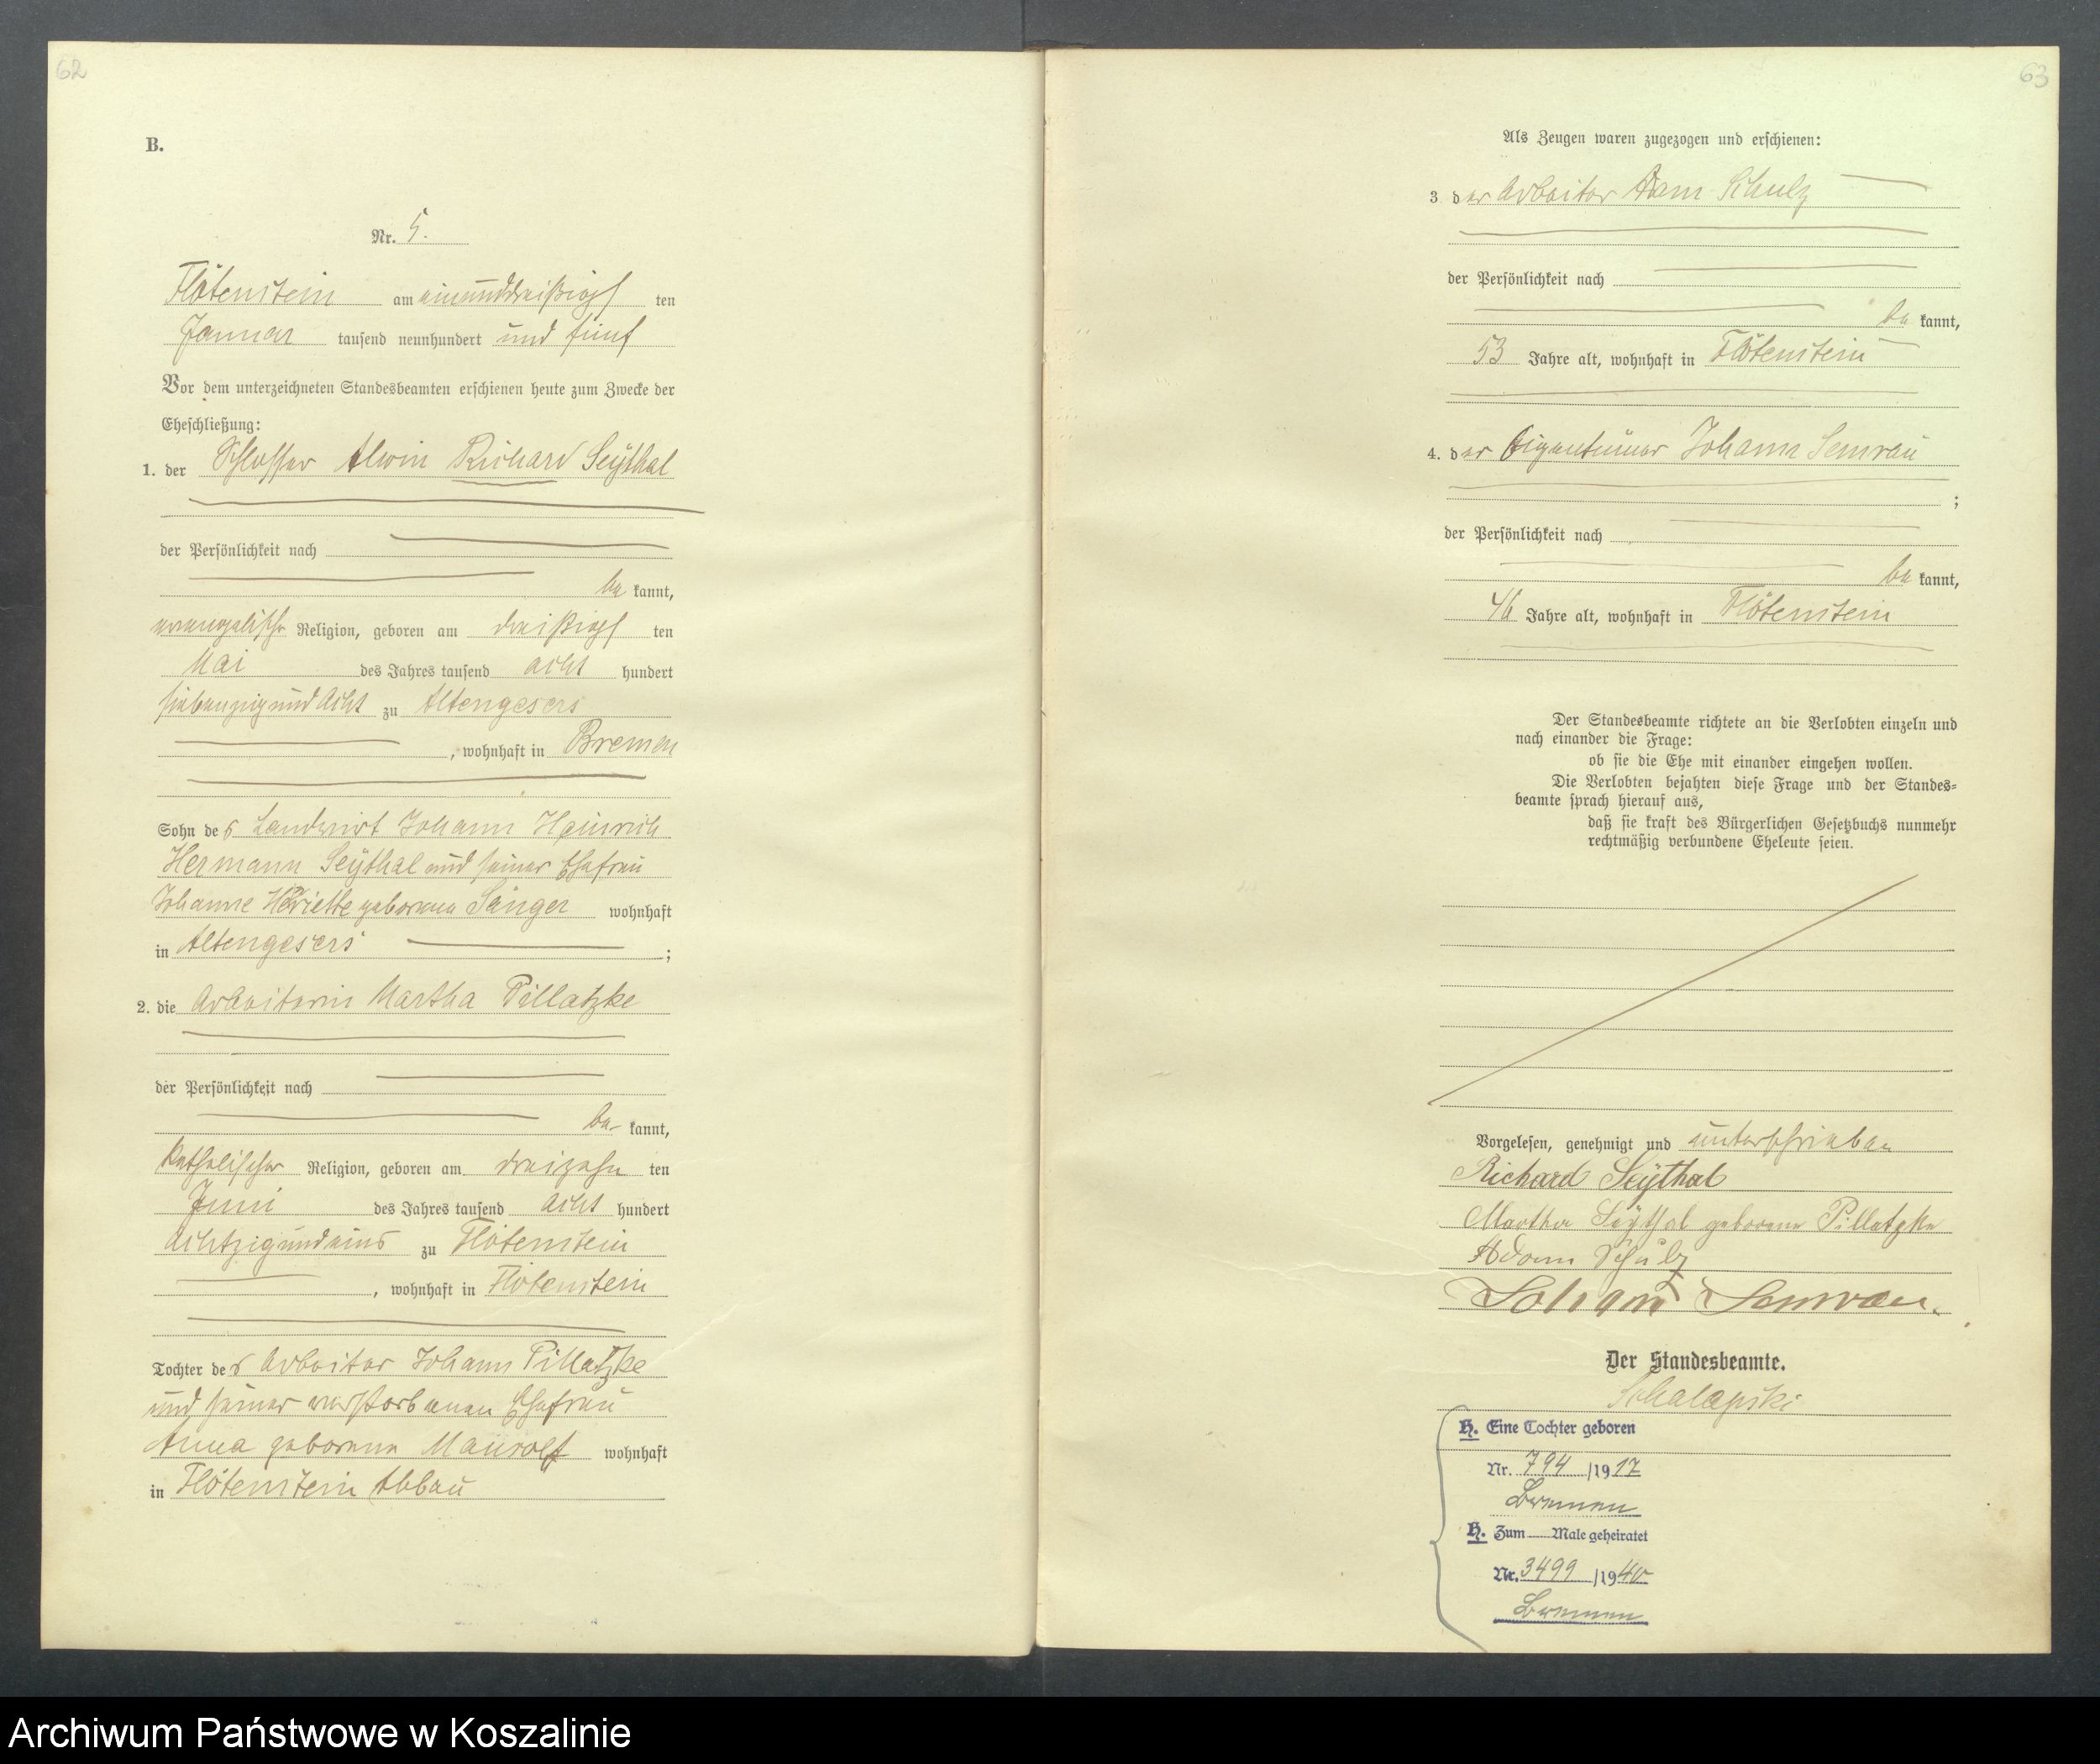 62
B.
Nr. 5.
Flötenstein am einunddreißigsten
Januar tausend neunhundert und fünf
Vor dem unterzeichneten Standesbeamten erschienen heute zum Zwecke der
Eheschließung:
1. der Schlosser Alwin Richard Seÿthal
der Persönlichkeit nach
be kannt,
evangelischer Religion, geboren am dreißigsten
Mai des Jahres tausend acht hundert
siebenzig und acht zu Altengesees
, wohnhaft in Bremen
Sohn des Landwirt Johann Heinrich
Hermann Seÿthal und seiner Ehefrau
Johanne Henriette geborenen Sänger wohnhaft
in Altengesees ;
2. die Arbeiterin Martha Pillatzke
der Persönlichkeit nach
be kannt,
katholischer Religion, geboren am dreizehn ten
Juni des Jahres tausend acht hundert
achtzig und eins zu Flötenstein
, wohnhaft in Flötenstein
Tochter des Arbeiter Johann Pillatzke
und seiner verstorbenen Ehefrau
Anna geborenen Maurolf wohnhaft
in Flötenstein Abbau
63
Als Zeugen waren zugezogen und erschienen:
3 der Arbeiter Adam Schulz
der Persönlichkeit nach
be kannt,
53 Jahre alt, wohnhaft in Flötenstein
4. der Eigentümer Johann Semrau
;
der Persönlichkeit nach
be kannt,
46 Jahre alt, wohnhaft in Flötenstein
Der Standesbeamte richtete an die Verlobten einzeln und
nach einander die Frage:
ob sie die Ehe mit einander eingehen wollen.
Die Verlobten bejahten diese Frage und der Standes-
beamte sprach hierauf aus,
daß sie kraft des Bürgerlichen Gesetzbuchs nunmehr
rechtmäßig verbundene Eheleute seien.
Vorgelesen, genehmigt und unterschrieben
Richard Seÿthal
Martha Seÿthal geborene Pillatzke
Adam Schulz
Johann Semrau.
Der Standesbeamte.
Schalapski
H. Eine Tochter geboren
Nr. 794 /1917
Bremen
H. Zum Male geheiratet
Nr. 3499 /1940
Bremen
Archiwum Państwowe w Koszalinie